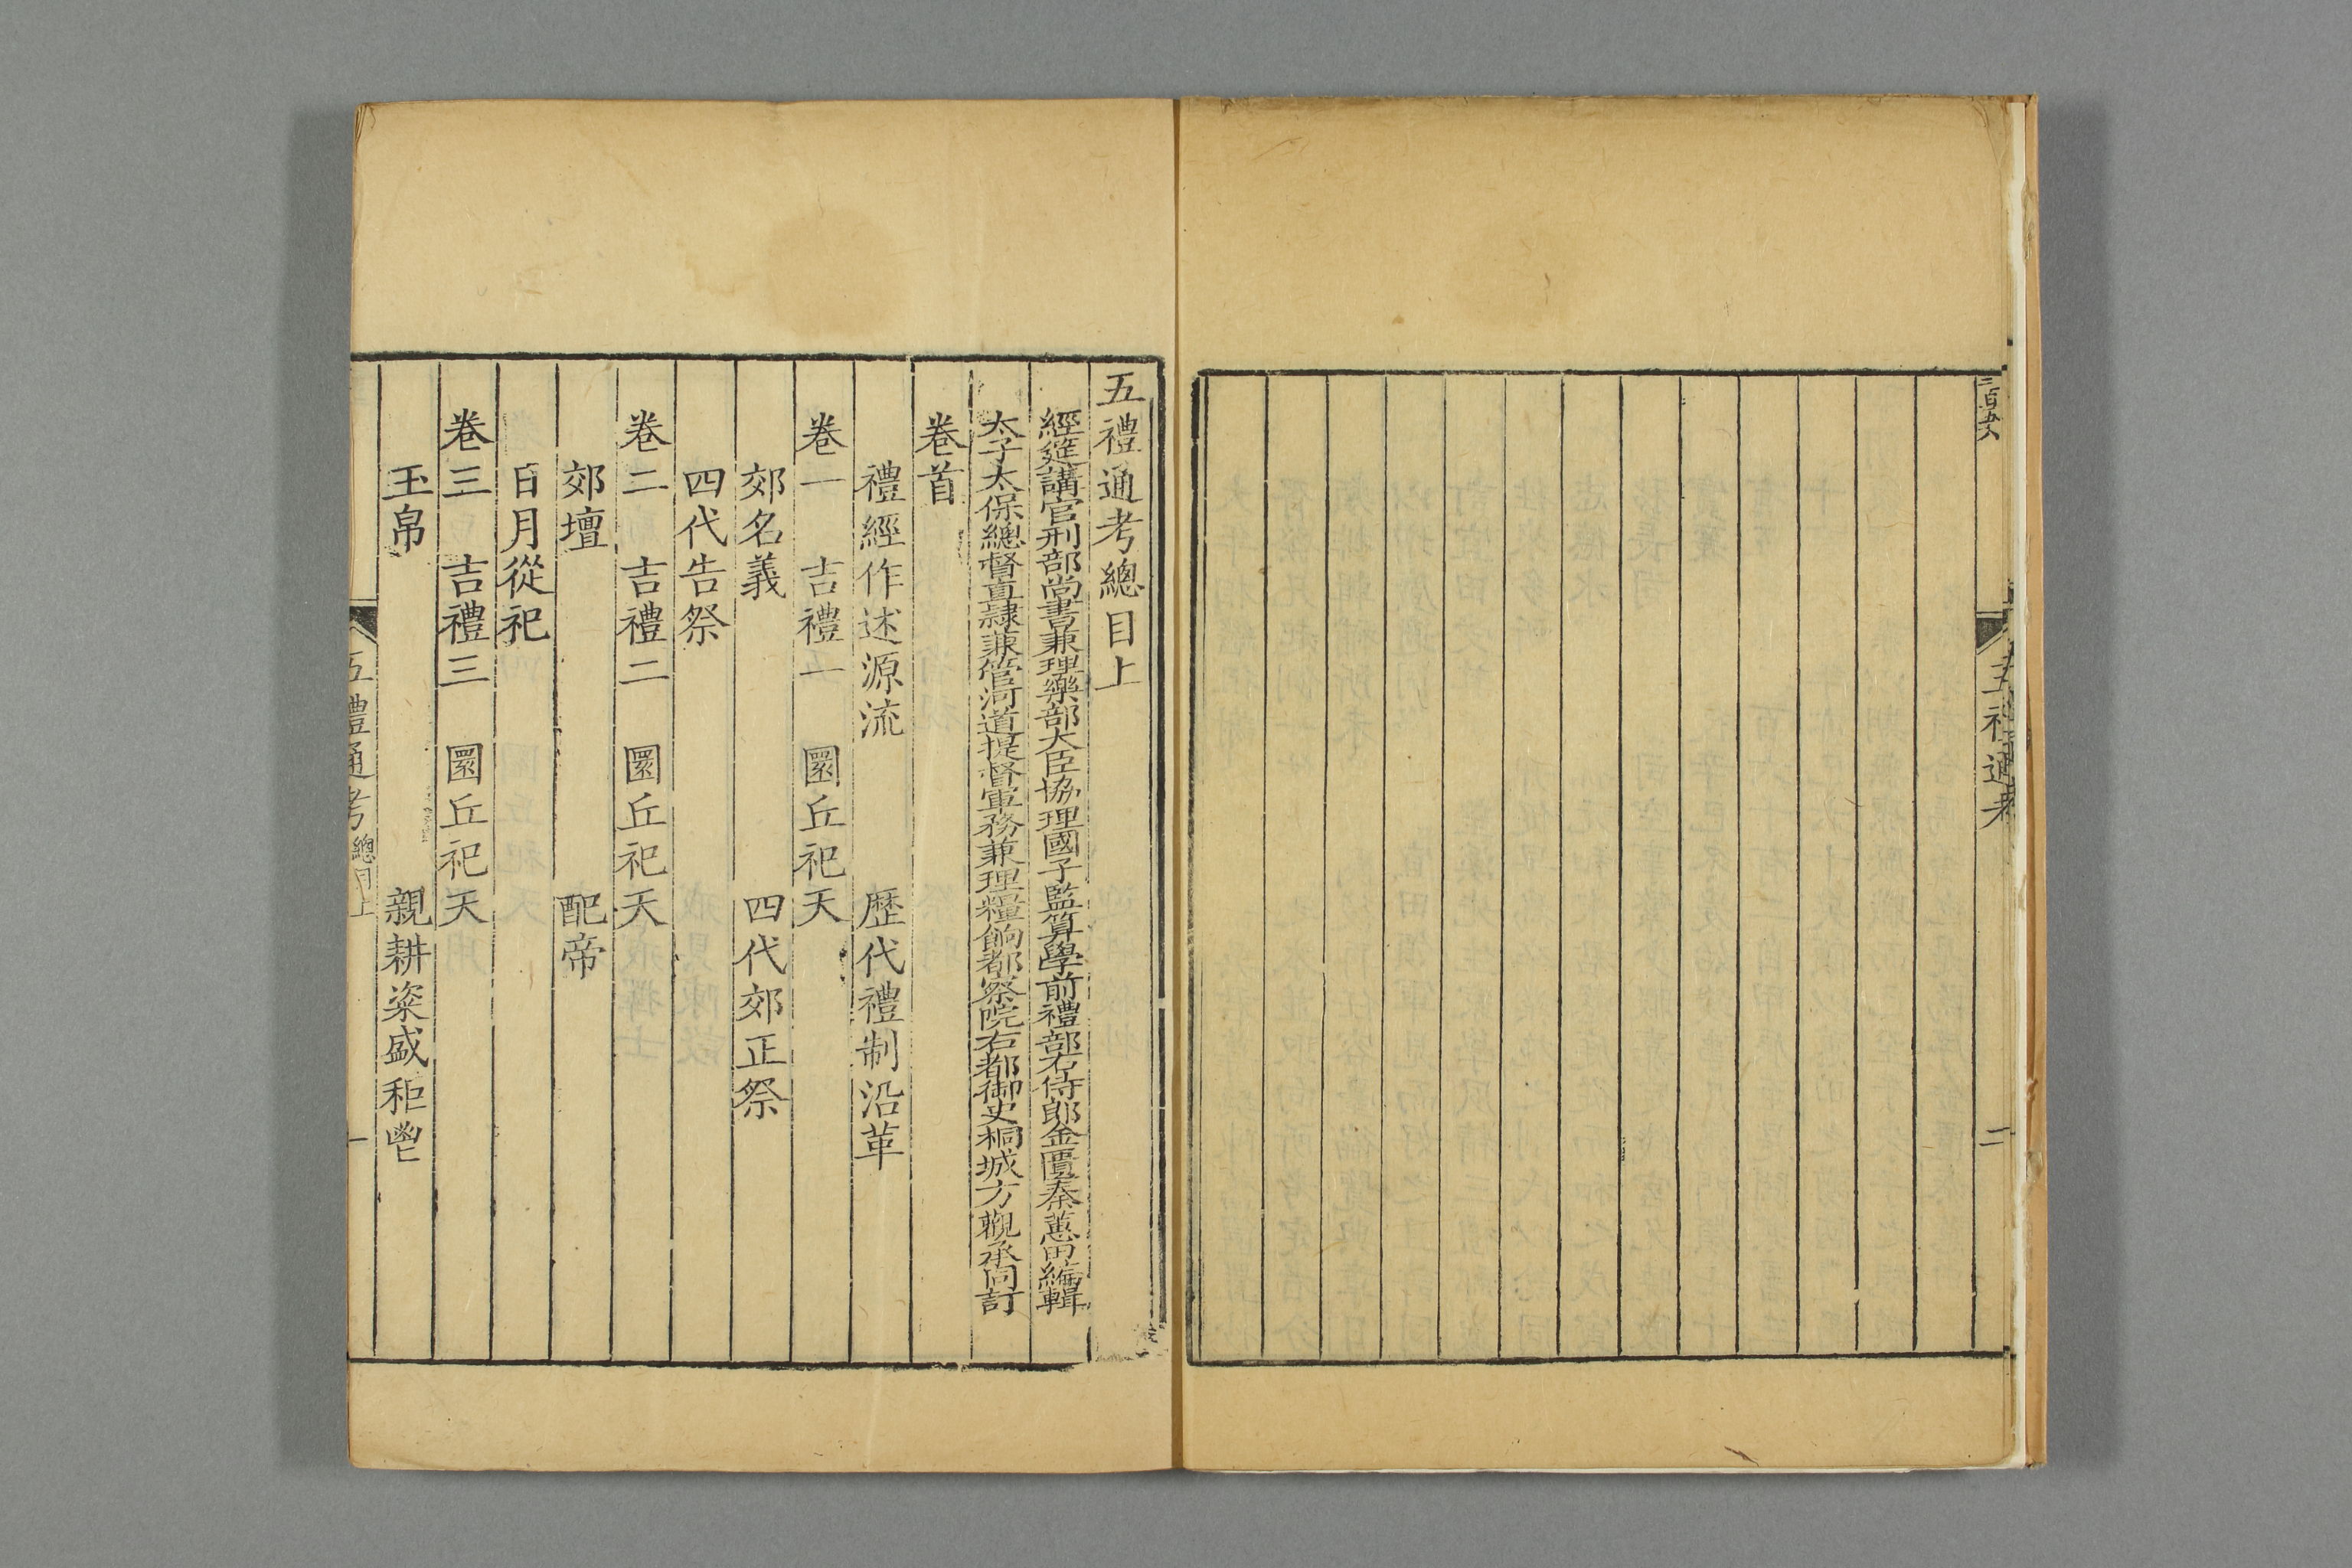 五禮通考總目上
經筵講官刑部尚書兼理樂部大臣協理國子監算學前禮部右侍郎金匱秦蕙田編輯
太子太保總督直隸兼管河道提督軍務兼理糧餉都察院右都御史桐城方觀承同訂
卷首
禮經作述源流　歷代禮制沿革
卷一　吉禮一　圜丘祀天
郊名義　四代郊正祭
四代告祭
卷二　吉禮二　圜丘祀天
郊壇　配帝
日月從祀
卷三　吉禮三　圜丘祀天
玉帛　親耕粢盛秬鬯
五禮通考　總目上　一